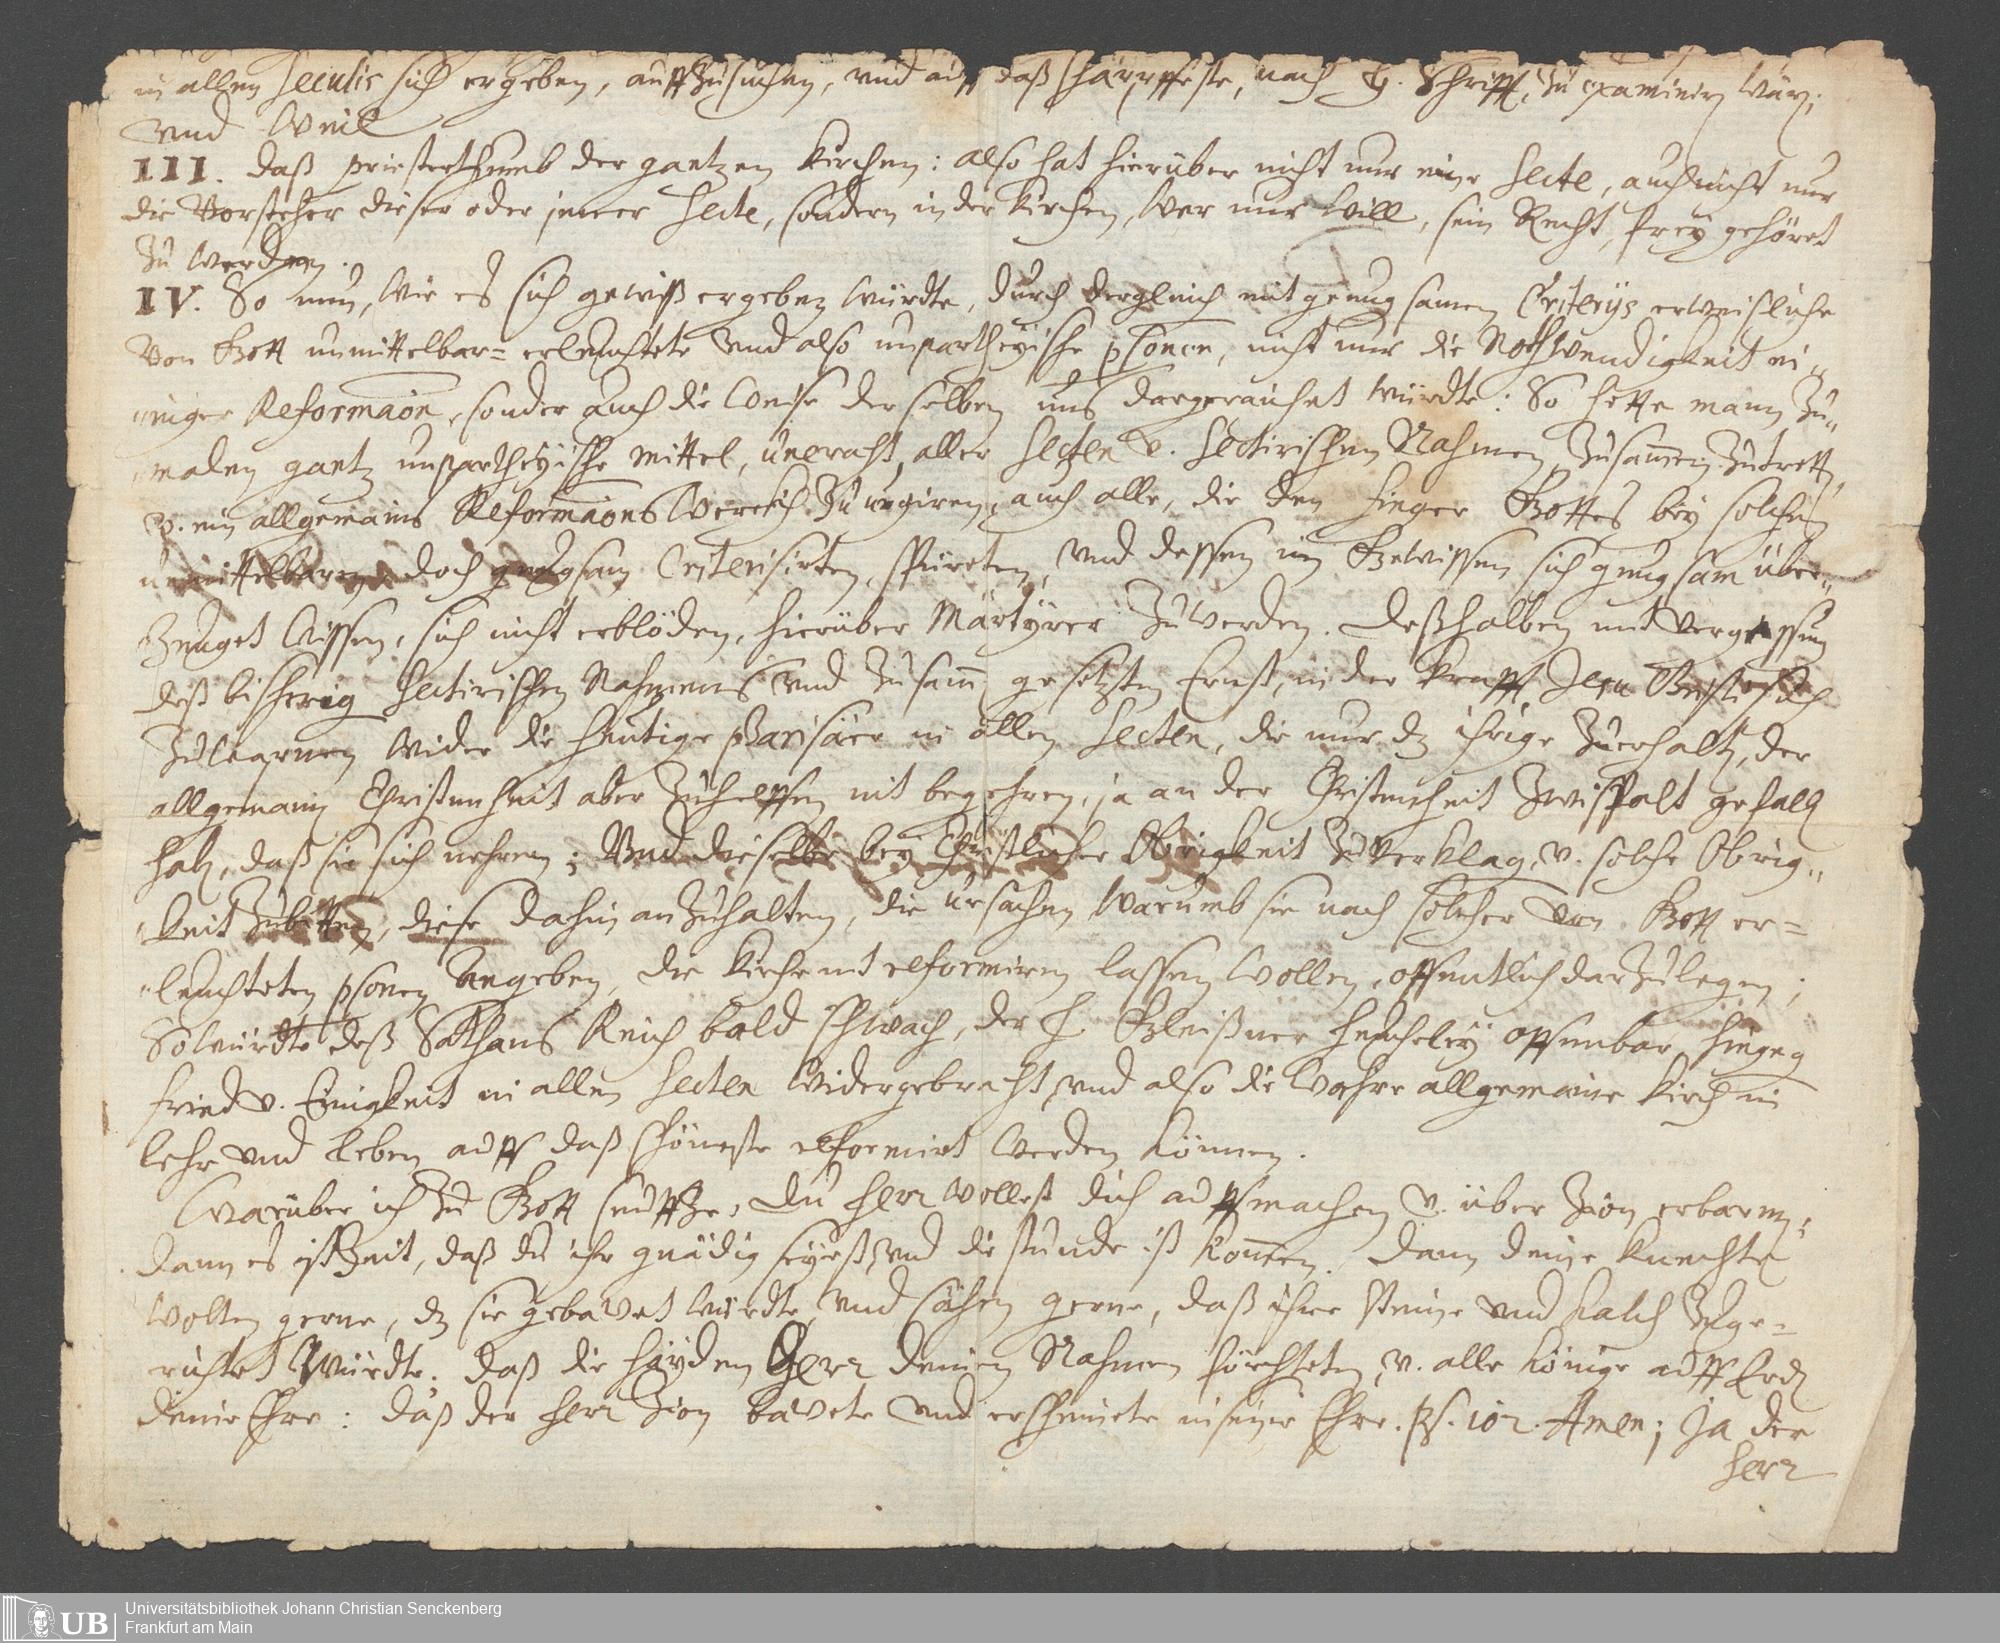 in allen Seculis sich ergeben, auffzusuchen, und auff daß schärpffeste, nach H. Schrifft, zu examinirn wärn;
und weil
III. daß priesterthumb der gantzen Kirchen: also hat hierüber nicht nur eine Secte, auch nicht nur
die Vorsteher dieser oder jener Secte, sondern in der Kirchen, wer nur will, sein Recht, frey gehöret
zu werden.
IV. So nun, wie es sich gewiß ergeben würdte, durch dergleich mit genugsamen Criterijs erweißliche
von Gott unmittelbar= erleuchtete und also unpartheyische psonen, nicht nur die Nothwendigkeit ei„
„niger Reformaon, sonder auch die Weise derselben uns dargeraichet würdte: So hette mann zu„
„malen gantz unpartheyische mittel, uneracht, aller Secten v. Sectirischen Nahmen, zusammen zutretten,
v. ein allgemains Reformaons Werckh zu urgiren, auch alle, die den finger Gottes bey solchen
unmittelbaren, doch gnugsam Criterisirten, spüreten, und dessen im Gewissen sich gnugsam über„
zeuget wissen, sich nicht erblöden, hierüber Märtyrer zu werden. Deßhalben mit vergessung
deß bißherig Sectirischen Nahmens und zusamm gesetzten Ernst, in der Krafft Jesu Christi sich
zulearnen wider die heutige Phariseer in allen Secten, die nur dz ihrige zuerhalten, der
allgemain Christenheit aber zuhelffen nit begehren, ja an der Christenheit zwispalt gefallen
haben, daß sie sich nehren; Und dieselbe bey Christlicher Obrigkeit zu verklag, v. solche Obrig„
„keit zubitten, diese dahin anzuhalten, die ursachen warumb sie nach solcher von Gott er=
„leuchteten psonen Angeben, die Kirche nit reformiren lassen wollen, offentlich darzulegen;
So würdte deß Sathans Reich bald schwach, der H. Gleißner heucheley offenbar, hingeg
fried v. Einigkeit in allen Secten widergebracht, und also die wahre allgemaine Kirch in
lehr und leben auffs daß schöneste reformirt werden können.
Warüber ich zu Gott seuffze, Du Herr wollest dich auffmachen v. über Zion erbarmen,
dann es ist Zeit, daß du ihr gnädig seyest, und die stunde ist kommen. Dann deine Knechte
wolten gerne, dz sie gebawet würdte, und sähen gerne, daß ihre steine und kalch zuge=
richtet würdte. daß die Hayden Herr deinen Nahmen förchteten, v. alle Könige auff Erden
deine Ehre: daß der Herr Zion bawete und erscheinete in seiner Ehre. Ps. 102. Amen; Ja der
Herr
UB
Universitätsbibliothek Johann Christian Senckenberg
Frankfurt am Main